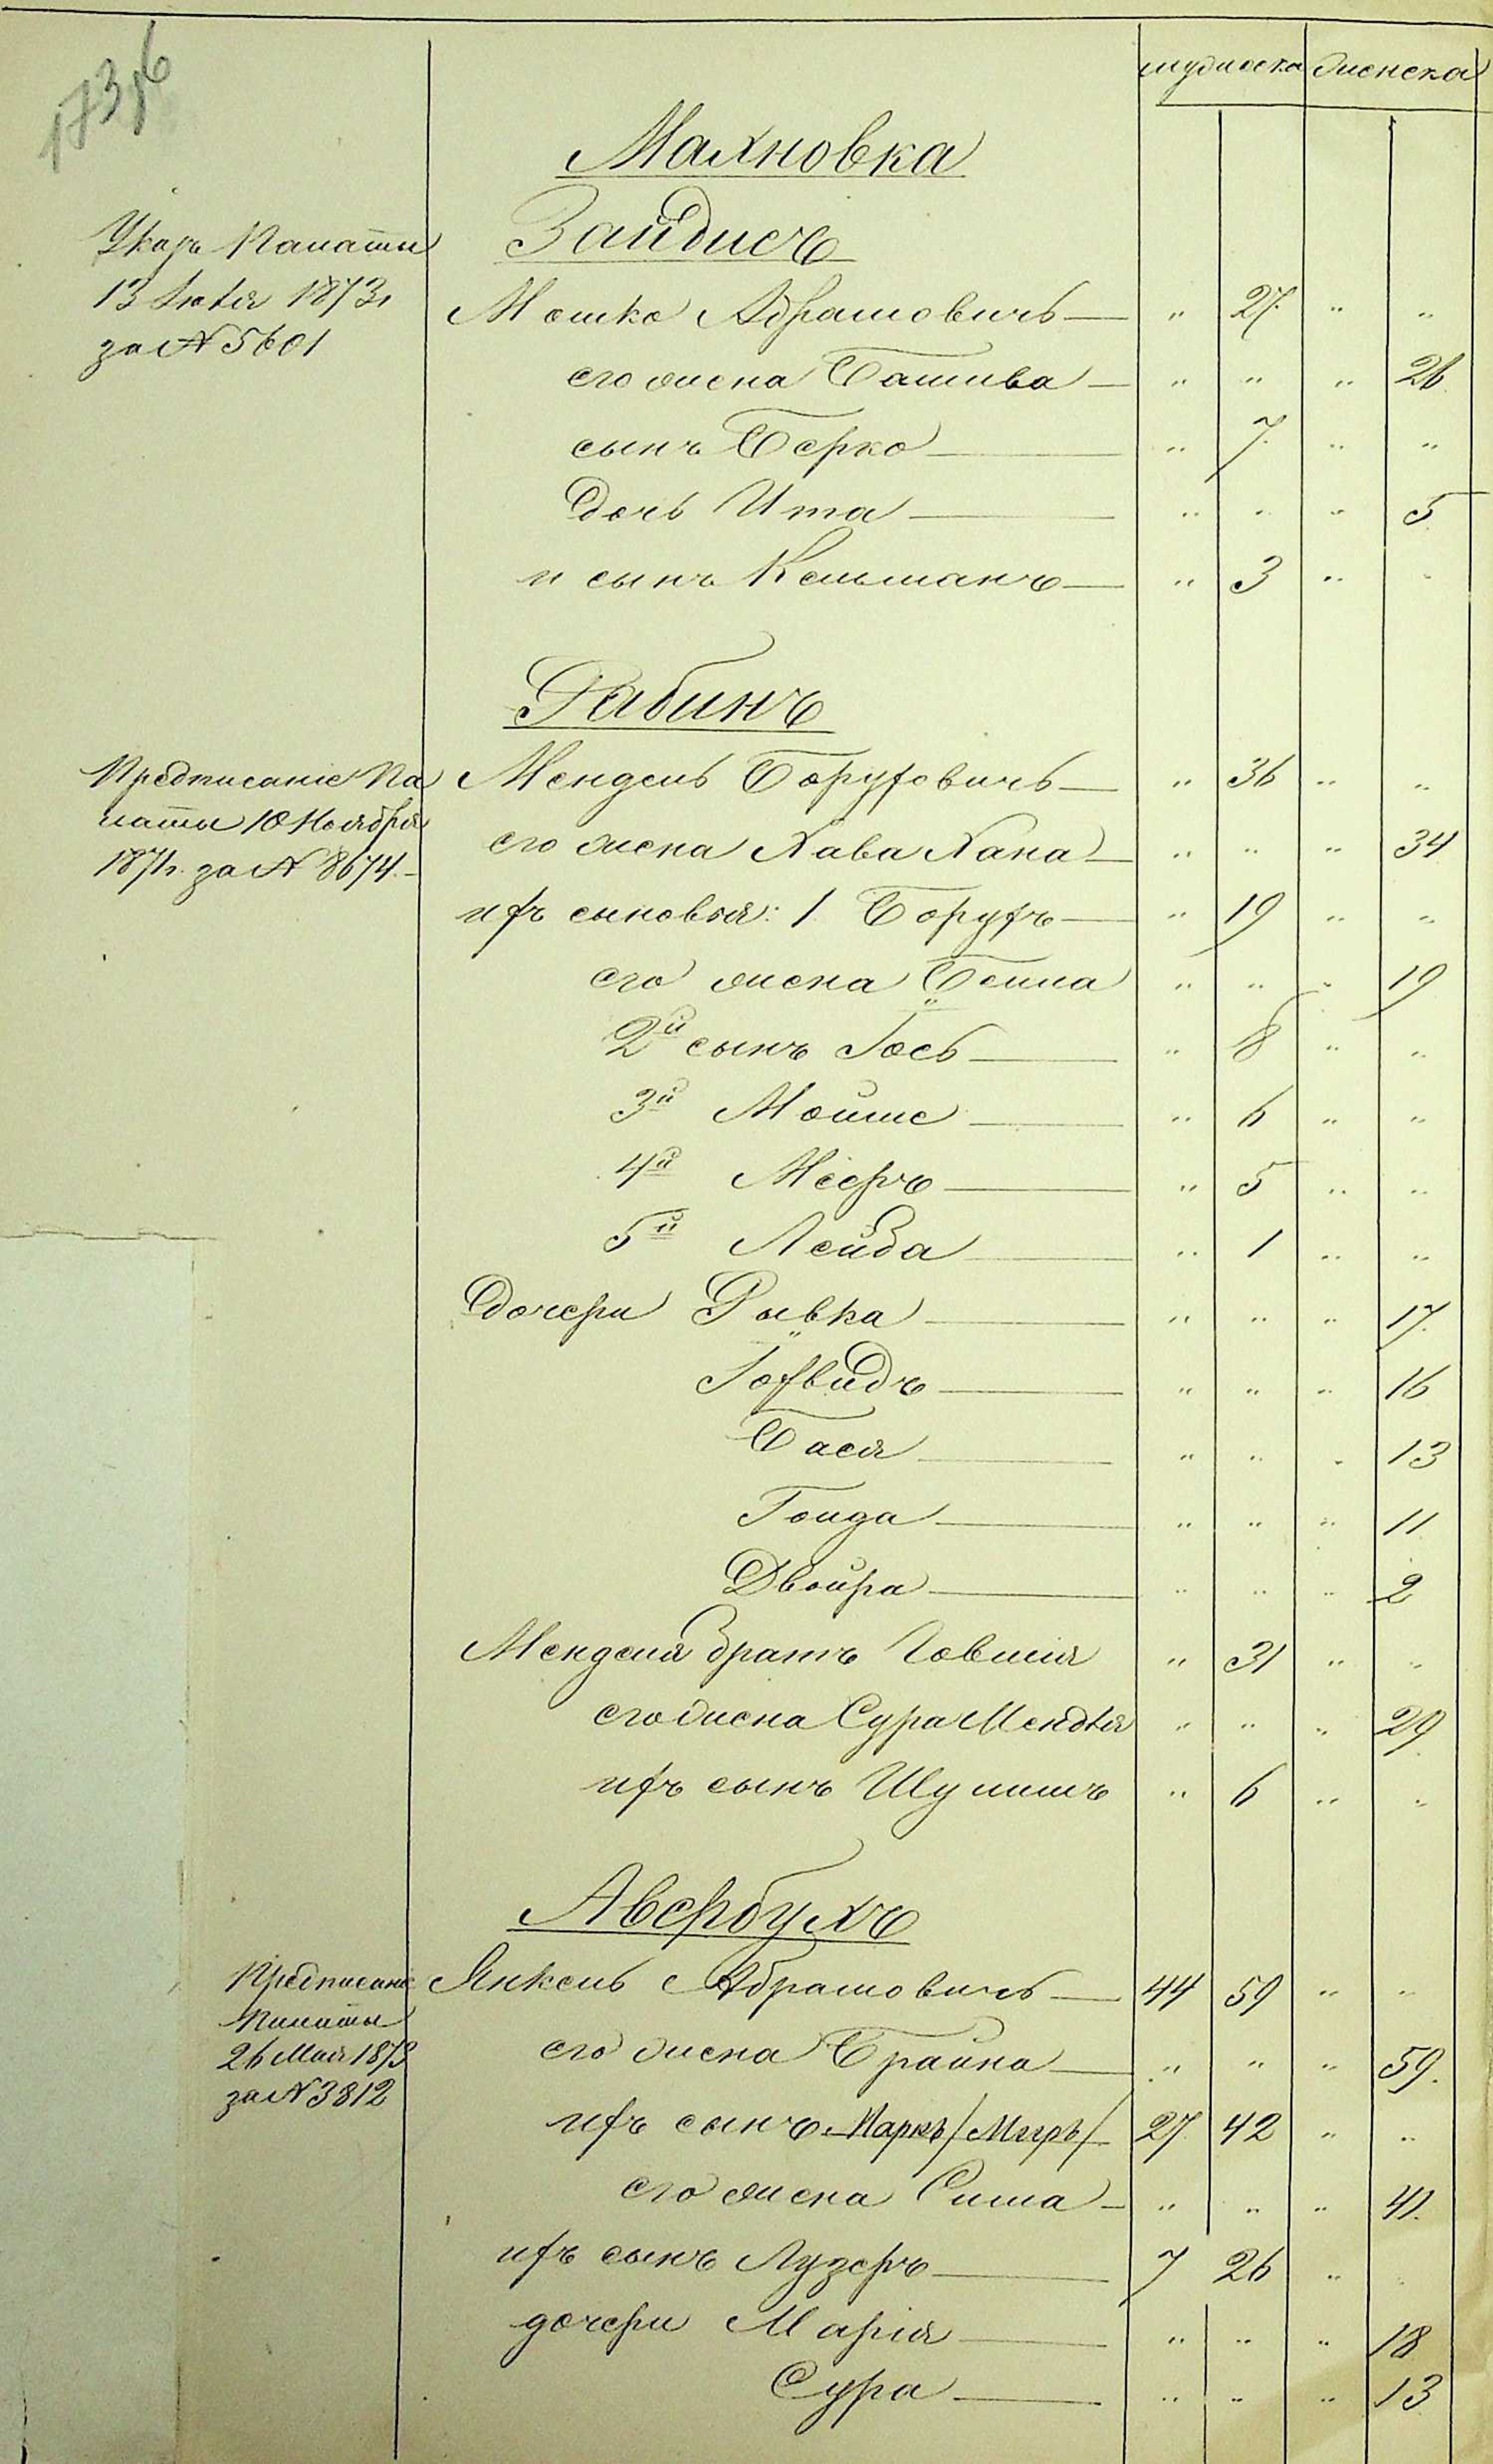 173 6
мужеска женска
Махновка
Зайдисъ
Указъ Палаты
13 Іюля 1873г
за N 5601
Мошко Абрамовичъ — " 27. " "
его жена Башива — " " " 26.
сынъ Берко — " 7. " "
Дочь Ита — " " " 5.
и сынъ Кельманъ — " 3 " "
Рабинъ
Предписаніе Па
латы 10 Ноября
1871г. за N 8674. -
Мендель Боруховичъ — " 36 " "
его жена Хава Хана — " " " 34
ихъ сыновья: 1. Борухъ — " 19 " "
его жена Бейла " " " 19
2й сынъ Іось — " 8 " "
3й Мойше — " 6 " "
4й Мееръ — " 5 " "
5й Лейба — " 1 " "
Дочери Рывка — " " " 17.
Іохвидъ — " " " 16
Бася — " " " 13
Гоида — " " " 11
Двойра — " " " 2
Менделя братъ Іовшія " 31 " "
его жена Сура Мендля " " " 29.
ихъ сынъ Шулимъ " 6 " "
Авербухъ
Предписаніе
Палаты
26 Мая 1873
за N 3812
Янкель Абрамовичъ — 44 59 " "
его жена Брайна — " " " 59.
ихъ сынъ Маркъ /Миръ/ — 27 42 " "
его жена Сима — " " " 41.
ихъ сынъ Лузеръ — 7 26 " "
дочери Марія — " " " 18
Сура — " " " 13